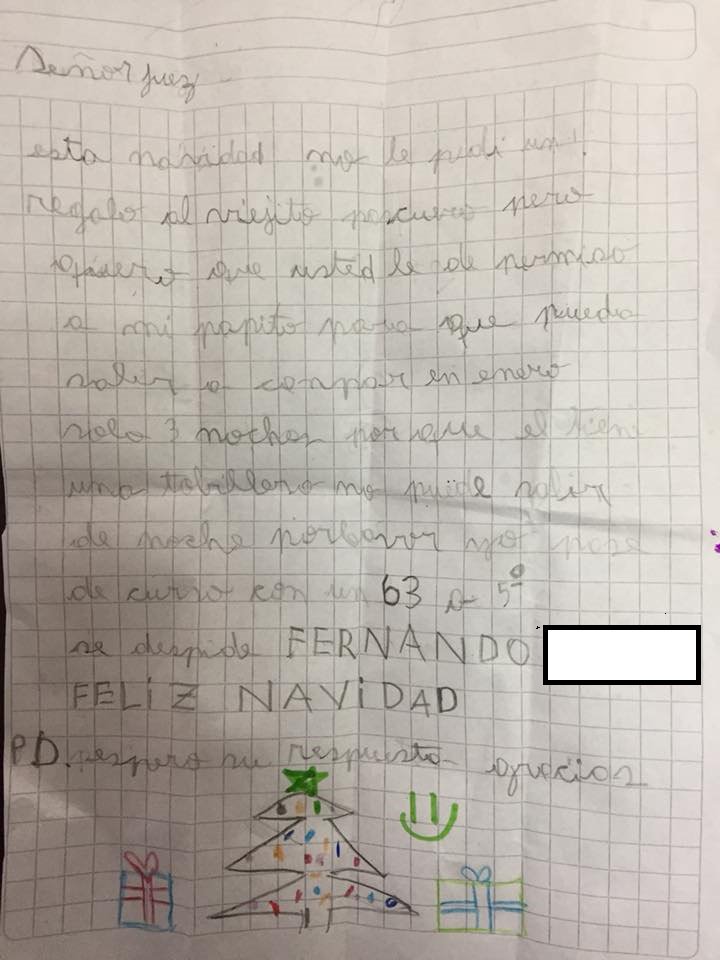 Señor juez
esta navidad no le pedi un
regalo al viejito pascuero pero
quiero que usted le de permiso
a mi papito para que pueda
salir a compar en enero
solo 3 noches porque el tiene
una tobillera no puede salir
de noche porfavor yo pase
de curso con un 63 a 5º
se despide FERNANDO
FELiZ NAViDAD
PD. espero su respuesta gracias